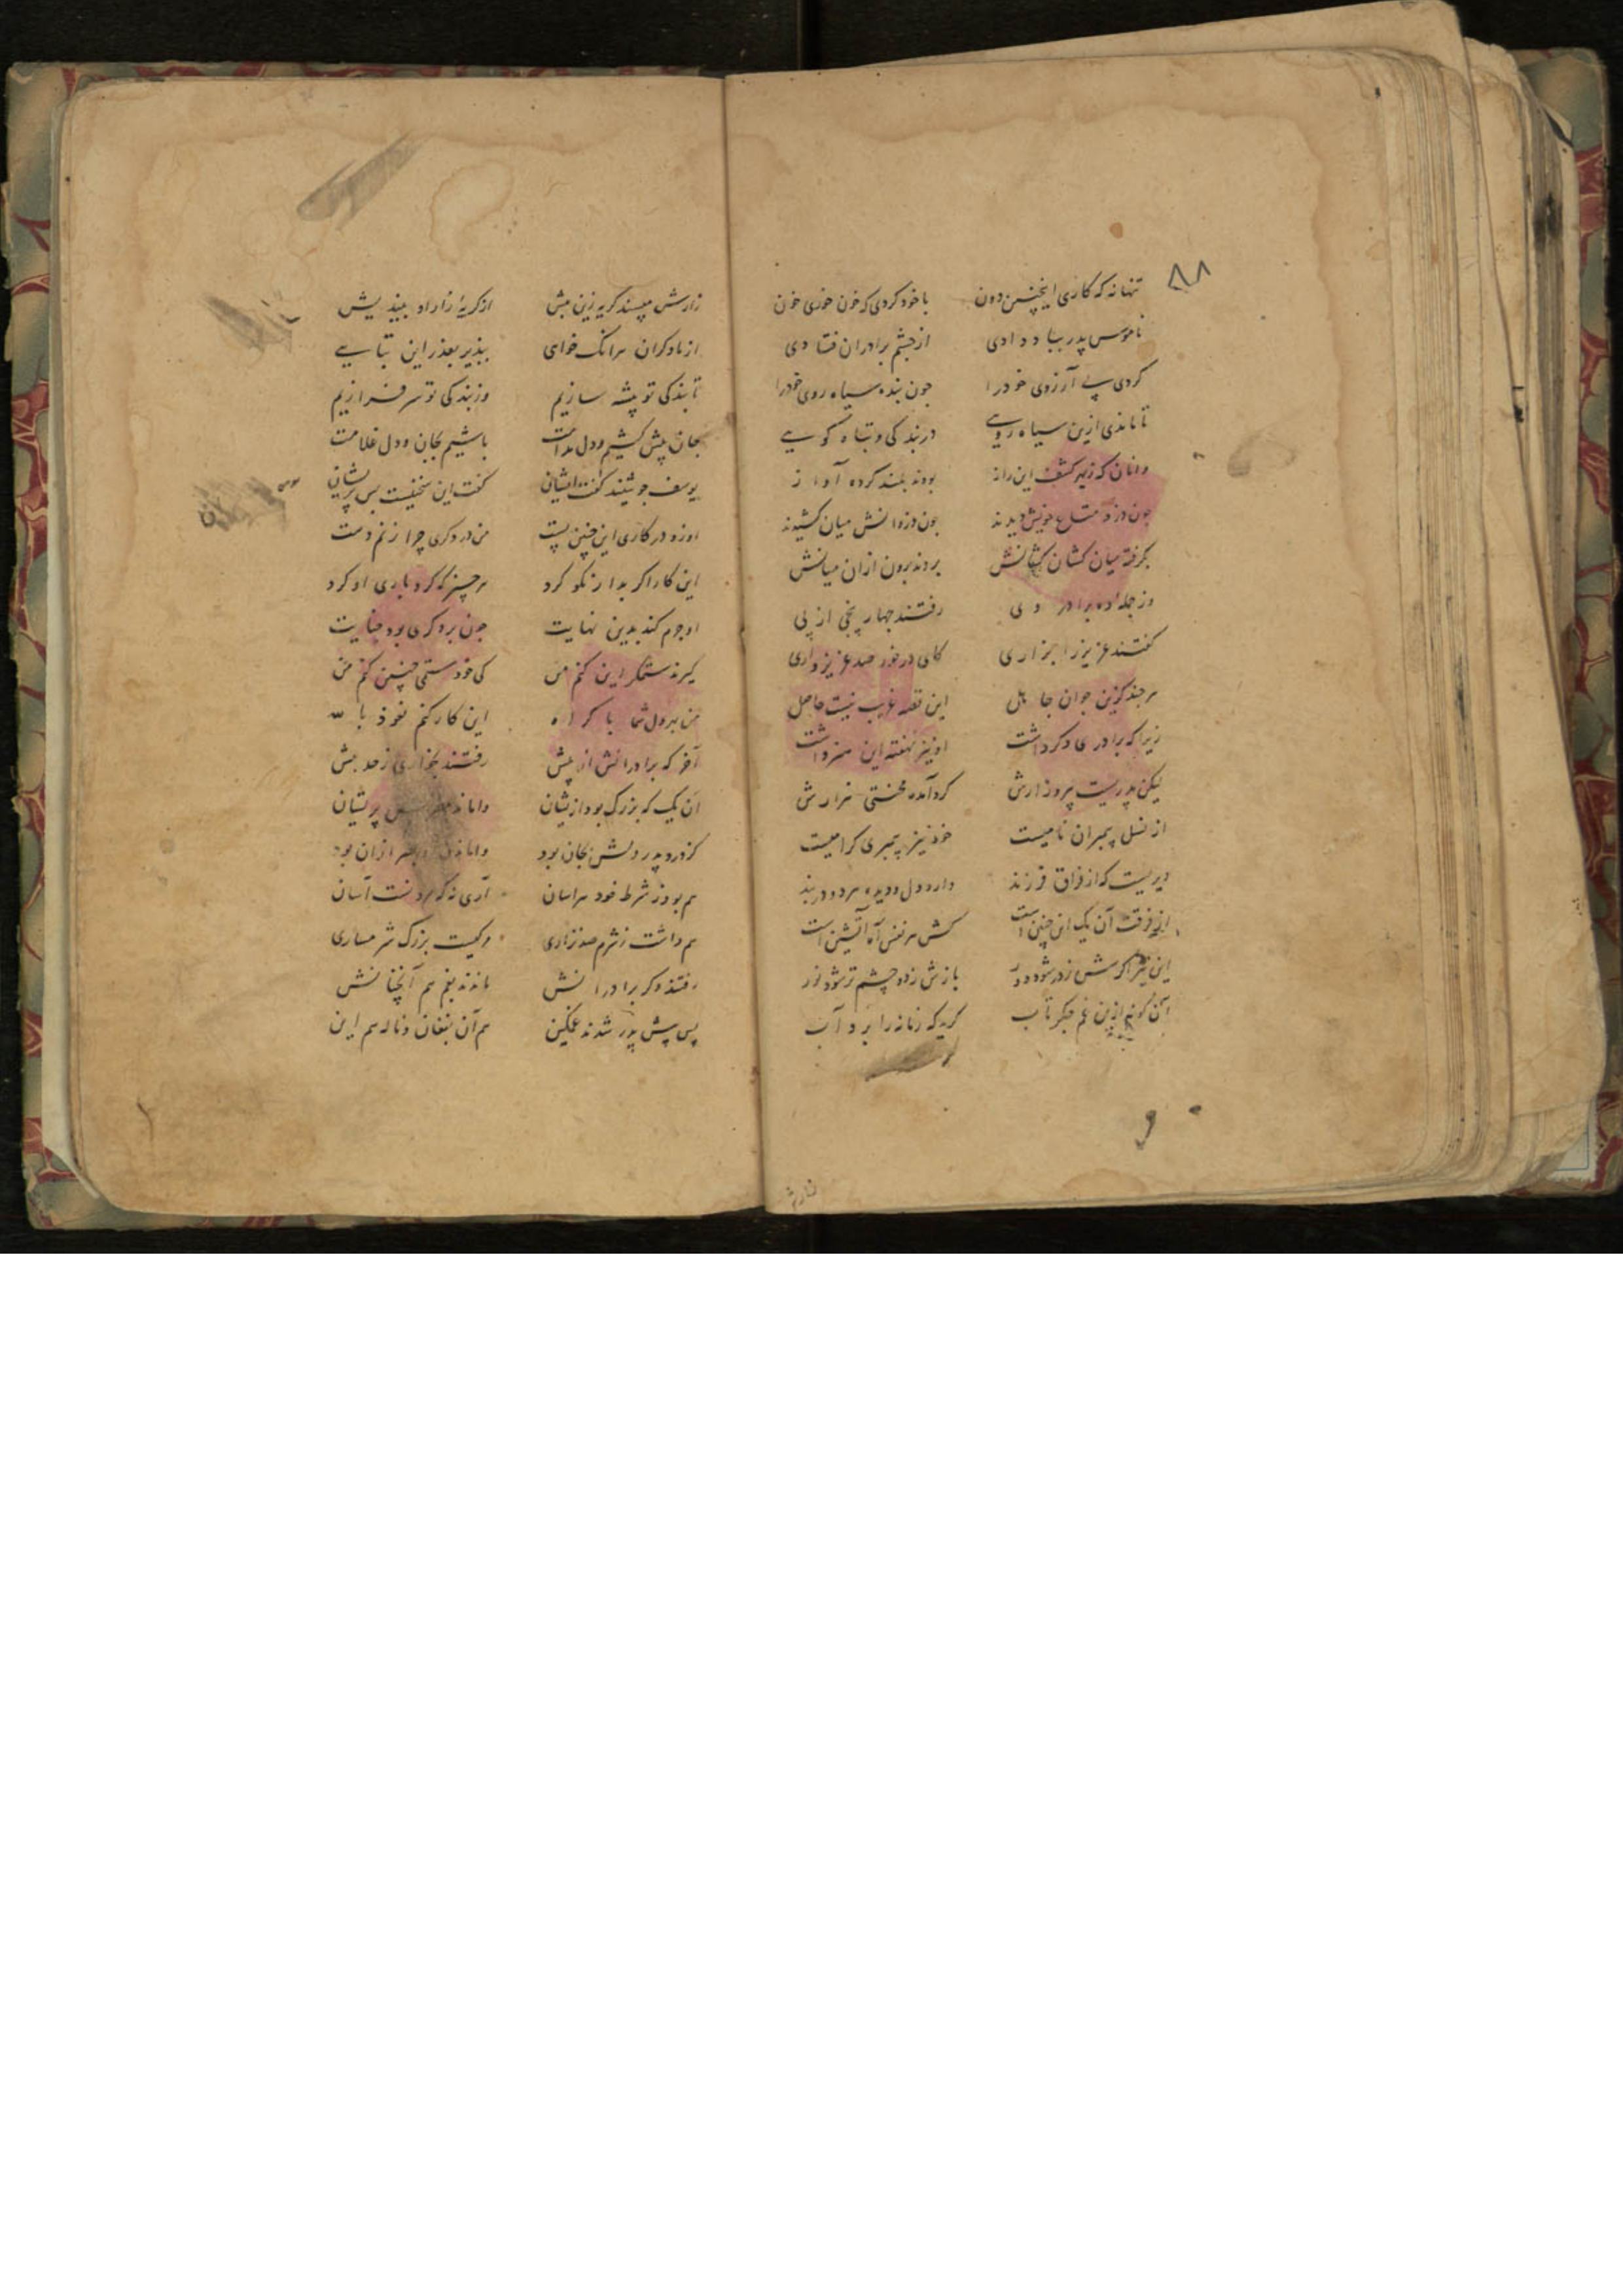 ۸۸
تنها نه که کاری اینچنین دون با خود کردی که خون خوری خون
ناموس پدر بباد دادی از چشم برادران فتادی
کردی پی آرزوی خود را چون بنده سیاه روی خود را
تا ماندی ازین سیاه رویی در بندکی و تباه کویی
وانان که زبهر کشف این راز بودند بلند کرده آواز
چون دزد متاع خویش دیدند چون دزدانش میان کشیدند
بکرفته میان کشان کشانش بردند برون ازان میانش
وز جمله ده برادر وی رفتند چهار پنجی از پی
کفتند عزیز را بزاری کای در خور صد عزیز داری
هر چند کزین جوان جاهل این قصه غریب نیست حاصل
زیرا که برادری دکر داشت او نیز نهفته این هنر داشت
لیکن پدریست پیر و زارش کرد آمده محنتی هزارش
از نسل پیمبران نامیست خود نیز پیمبری کرامیست
دیریست که از فراق فرزند دارد دل و دیده هر دو در بند
از فرقت آن یک این چنین است کش هر نفس آه آتشین است
این نیز اکرش ز در شود دور بازش ز دو چشم تر شود نور
آن کونه ازین غم جکر تاب کرید که زمانه را برد آب
زارش
زارش مپسند کریه زین بیش از کریه زار او بیندیش
از ما دکران هر آنک خواهی بپذیر بعذر این تباهی
تا بندکی تو پیشه سازیم وز بندکی تو سر فرازیم
جان پیش کشیم و دل مدامت باشیم بجان و دل غلامت
یوسف چو شنید کفت ایشان کفت این سخنیست بس پریشان
او زد در کاری این چنین پست من در دکری چرا زنم دست
این کار اکر بد ار نکو کرد هر چیز که کرد باری او کرد
او جرم کند بدین نهایت چون بر دکری بود جنایت
کیرند ستمکر این کنم من کی خود ستمی چنین کنم من
من بر دل شما باکراه این کار کنم نعوذ بالله
آخر که برادرانش از پیش رفتند بخواری از حد بیش
آن یک که بزرک بود ازیشان پریشان
کز درد پدر دلش بجان بود ازان بود
هم بود ز شرط خود هراسان آری نه که مردنست آسان
هم داشت ز شرم صد زاری مرکیست بزرک شرمساری
رفتند دکر برادرانش ماندند بغم هم آنچنانش
پس پیش پدر شدند غمکین هم آن بفغان و ناله هم این